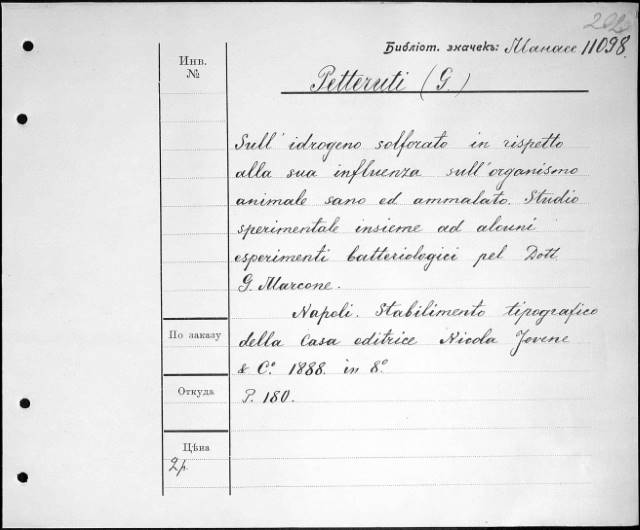 Инв.
№
Библіот. значекъ: Манасс 11098.
Petteruti (G.)
Sull' idrogeno solforato in rispetto
alla sua influenza sull' organismo
animale sano ed ammalato. Studio
sperimentale insieme ad alcuni
esperimenti batteriologici pel Dott.
G. Marcone.
Napoli. Stabilimento tipografico
della Casa editrice Nicola Jovene
& C.º 1888. in 8.º
P. 180.
По заказу
Откуда
Цѣна
2 р.